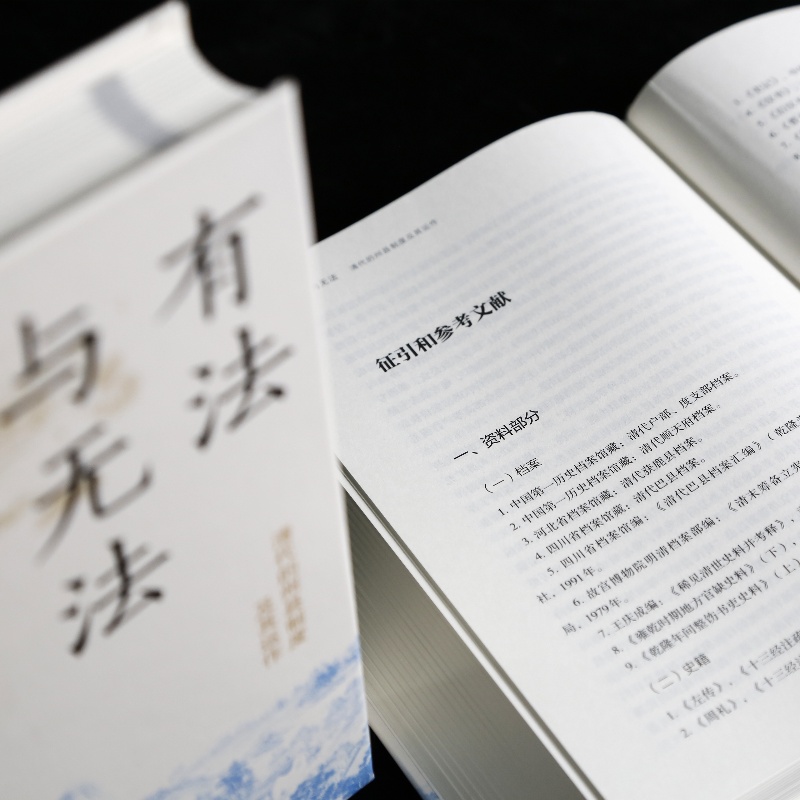 有法
与无法
征引和参考文献
一、资料部分
（一）档案
1. 中国第一历史档案馆藏：清代户部、度支部档案。
2. 中国第一历史档案馆藏：清代顺天府档案。
3. 河北省档案馆藏：清代获鹿县档案。
4. 四川省档案馆藏：清代巴县档案。
5. 四川省档案馆编：《清代巴县档案汇编》（乾隆
社，1991年。
6. 故宫博物院明清档案部编：《清末筹备立宪
局，1979年。
7. 王庆成编：《稀见清世史料并考释》，
8. 《雍乾时期地方官缺史料》（下），
9. 《乾隆年间整饬书吏史料》（上）
（二）史籍
1. 《左传》，《十三经注疏
2. 《周礼》，《十三经注